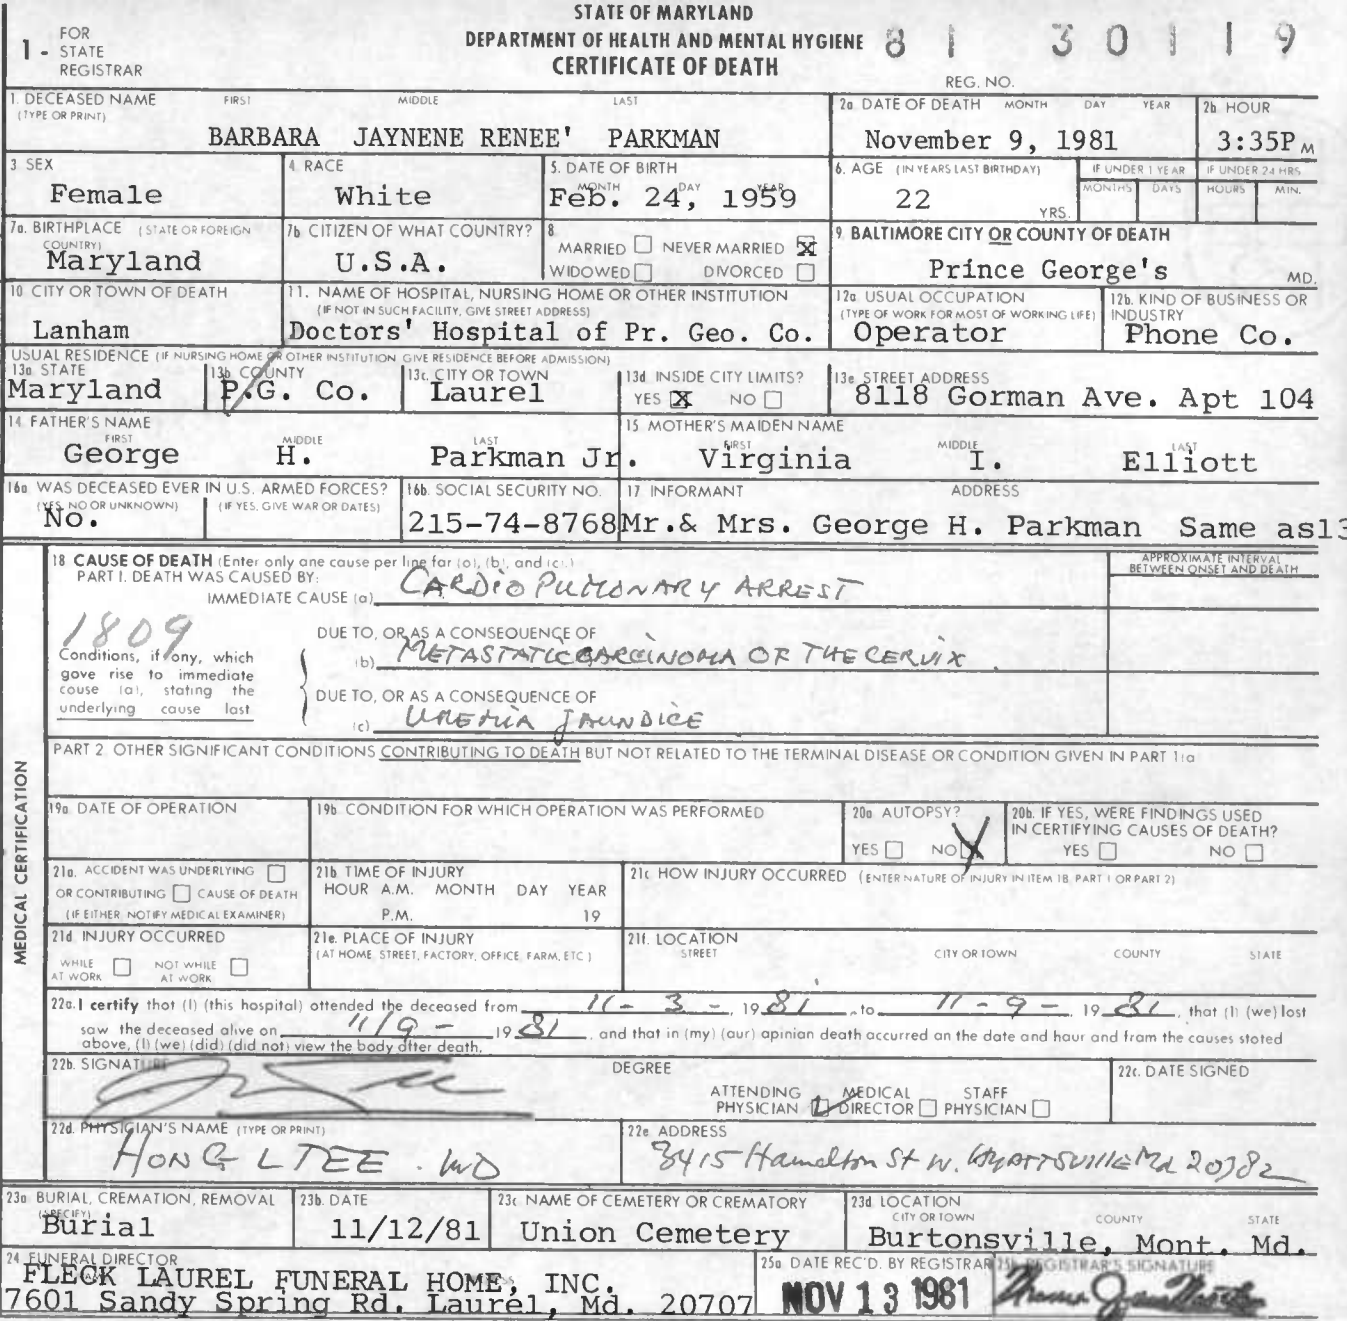 STATE OF MARYLAND
DEPARTMENT OF HEALTH AND MENTAL HYGIENE
CERTIFICATE OF DEATH
1 - FOR STATE REGISTRAR
81 30119
REG. NO.
1. DECEASED NAME (TYPE OR PRINT) FIRST MIDDLE LAST
BARBARA JAYNENE RENEE' PARKMAN
2a. DATE OF DEATH MONTH DAY YEAR
November 9, 1981
2b. HOUR
3:35P M
3. SEX
Female
4. RACE
White
5. DATE OF BIRTH MONTH DAY YEAR
Feb. 24, 1959
6. AGE (IN YEARS LAST BIRTHDAY)
22 YRS.
IF UNDER 1 YEAR MONTHS DAYS
IF UNDER 24 HRS HOURS MIN.
7a. BIRTHPLACE (STATE OR FOREIGN COUNTRY)
Maryland
7b. CITIZEN OF WHAT COUNTRY?
U.S.A.
8. MARRIED ☐ NEVER MARRIED ☒
WIDOWED ☐ DIVORCED ☐
9. BALTIMORE CITY OR COUNTY OF DEATH
Prince George's MD.
10. CITY OR TOWN OF DEATH
Lanham
11. NAME OF HOSPITAL, NURSING HOME OR OTHER INSTITUTION
(IF NOT IN SUCH FACILITY, GIVE STREET ADDRESS)
Doctors' Hospital of Pr. Geo. Co.
12a. USUAL OCCUPATION
(TYPE OF WORK FOR MOST OF WORKING LIFE)
Operator
12b. KIND OF BUSINESS OR INDUSTRY
Phone Co.
USUAL RESIDENCE (IF NURSING HOME OR OTHER INSTITUTION GIVE RESIDENCE BEFORE ADMISSION)
13a. STATE
Maryland
13b. COUNTY
P.G. Co.
13c. CITY OR TOWN
Laurel
13d. INSIDE CITY LIMITS?
YES ☒ NO ☐
13e. STREET ADDRESS
8118 Gorman Ave. Apt 104
14. FATHER'S NAME FIRST MIDDLE LAST
George H. Parkman Jr.
15. MOTHER'S MAIDEN NAME FIRST MIDDLE LAST
Virginia I. Elliott
16a. WAS DECEASED EVER IN U.S. ARMED FORCES?
(YES, NO OR UNKNOWN) (IF YES, GIVE WAR OR DATES)
No.
16b. SOCIAL SECURITY NO.
215-74-8768
17. INFORMANT ADDRESS
Mr.& Mrs. George H. Parkman Same as13
MEDICAL CERTIFICATION
18. CAUSE OF DEATH (Enter only one cause per line for (a), (b), and (c).)
PART I. DEATH WAS CAUSED BY:
IMMEDIATE CAUSE (a) CARDIO PULMONARY ARREST
APPROXIMATE INTERVAL BETWEEN ONSET AND DEATH
1809
Conditions, if any, which gave rise to immediate cause (a), stating the underlying cause last
DUE TO, OR AS A CONSEQUENCE OF
(b) METASTATIC CARCINOMA OF THE CERVIX
DUE TO, OR AS A CONSEQUENCE OF
(c) UREMIA JAUNDICE
PART 2. OTHER SIGNIFICANT CONDITIONS CONTRIBUTING TO DEATH BUT NOT RELATED TO THE TERMINAL DISEASE OR CONDITION GIVEN IN PART 1(a
19a. DATE OF OPERATION
19b. CONDITION FOR WHICH OPERATION WAS PERFORMED
20a. AUTOPSY?
YES ☐ NO ☒
20b. IF YES, WERE FINDINGS USED IN CERTIFYING CAUSES OF DEATH?
YES ☐ NO ☐
21a. ACCIDENT WAS UNDERLYING ☐
OR CONTRIBUTING ☐ CAUSE OF DEATH
(IF EITHER, NOTIFY MEDICAL EXAMINER)
21b. TIME OF INJURY
HOUR A.M. MONTH DAY YEAR
P.M. 19
21c. HOW INJURY OCCURRED (ENTER NATURE OF INJURY IN ITEM 18, PART 1 OR PART 2)
21d. INJURY OCCURRED
WHILE AT WORK ☐ NOT WHILE AT WORK ☐
21e. PLACE OF INJURY
(AT HOME, STREET, FACTORY, OFFICE, FARM, ETC.)
21f. LOCATION
STREET CITY OR TOWN COUNTY STATE
22a. I certify that (I) (this hospital) attended the deceased from 11-3-, 1981, to 11-9-, 1981, that (I) (we) last
saw the deceased alive on 11/9-1981, and that in (my) (our) opinion death occurred on the date and hour and from the causes stated
above, (I) (we) (did) (did not) view the body after death.
22b. SIGNATURE
DEGREE
ATTENDING PHYSICIAN ☑ MEDICAL DIRECTOR ☐ STAFF PHYSICIAN ☐
22c. DATE SIGNED
22d. PHYSICIAN'S NAME (TYPE OR PRINT)
HONG L TEE. MD
22e. ADDRESS
3415 Hamilton St W. HYATTSVILLE Md 20782
23a. BURIAL, CREMATION, REMOVAL (SPECIFY)
Burial
23b. DATE
11/12/81
23c. NAME OF CEMETERY OR CREMATORY
Union Cemetery
23d. LOCATION
CITY OR TOWN COUNTY STATE
Burtonsville, Mont. Md.
24. FUNERAL DIRECTOR
FLECK LAUREL FUNERAL HOME, INC.
7601 Sandy Spring Rd. Laurel, Md. 20707
25a. DATE REC'D. BY REGISTRAR
NOV 13 1981
25b. REGISTRAR'S SIGNATURE